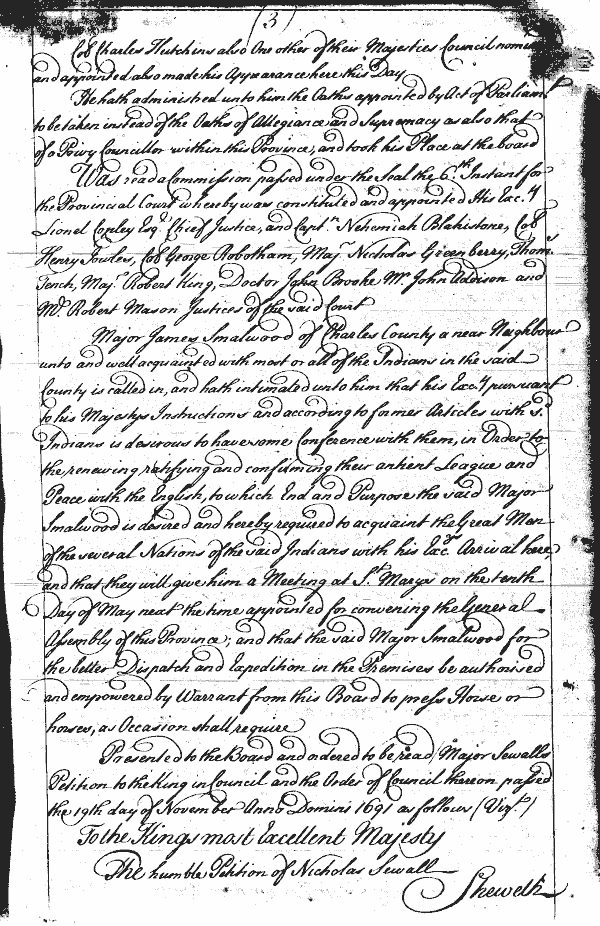 (3)
Col Charles Hutchins also One other of their Majesties Council nomin
and appointed also made his Appearance here this Day
He hath administred unto him the Oaths appointed by Act of Parliamt
to be taken instead of the Oaths of Allegiance and Supremacy as also that
of a Privy Councillor within this Province, and took his Place at the board
Was read a Commission passed under the Seal the 6.th Instant for
the Provincial Court whereby was constituted and appointed His Exc.y
Lionel Copley Esq.r Chief Justice, and Capt.n Nehemiah Blakistone, Col
Henry Jowles, Col George Robotham, Maj.r Nicholas Greenberry, Thom.s
Tench, Maj.r Robert King, Doctor John Brooke Mr. John Addison and
Mr. Robert Mason Justices of the said Court
Major James Smalwood of Charles County a near Neighbour
unto and well acquainted with most or all of the Indians in the said
County is called in, and hath intimated unto him that his Exc.y pursuant
to his Majestys Instructions and according to former Articles with s.d
Indians is desirous to have some Conference with them, in Order to
the renewing ratifying and confirming their antient League and
Peace with the English, to which End and Purpose the said Major
Smalwood is desired and hereby required to acquaint the Great Men
of the several Nations of the said Indians with his Exc.ys Arrival here,
and that they will give him a Meeting at S.t Marys on the tenth
Day of May next the time appointed for convening the General
Assembly of this Province; and that the said Major Smalwood for
the better Dispatch and Expedition in the Premises be authorised
and empowered by Warrant from this Board to press Horse or
horses, as Occasion shall require
Presented to the Board and ordered to be read, Major Sewalls
Petition to the King in Council and the Order of Council thereon passed
the 19th day of November Anno Domini 1691 as follows (Vizt.)
To the Kings most Excellent Majesty
The humble Petition of Nicholas Sewall
Sheweth